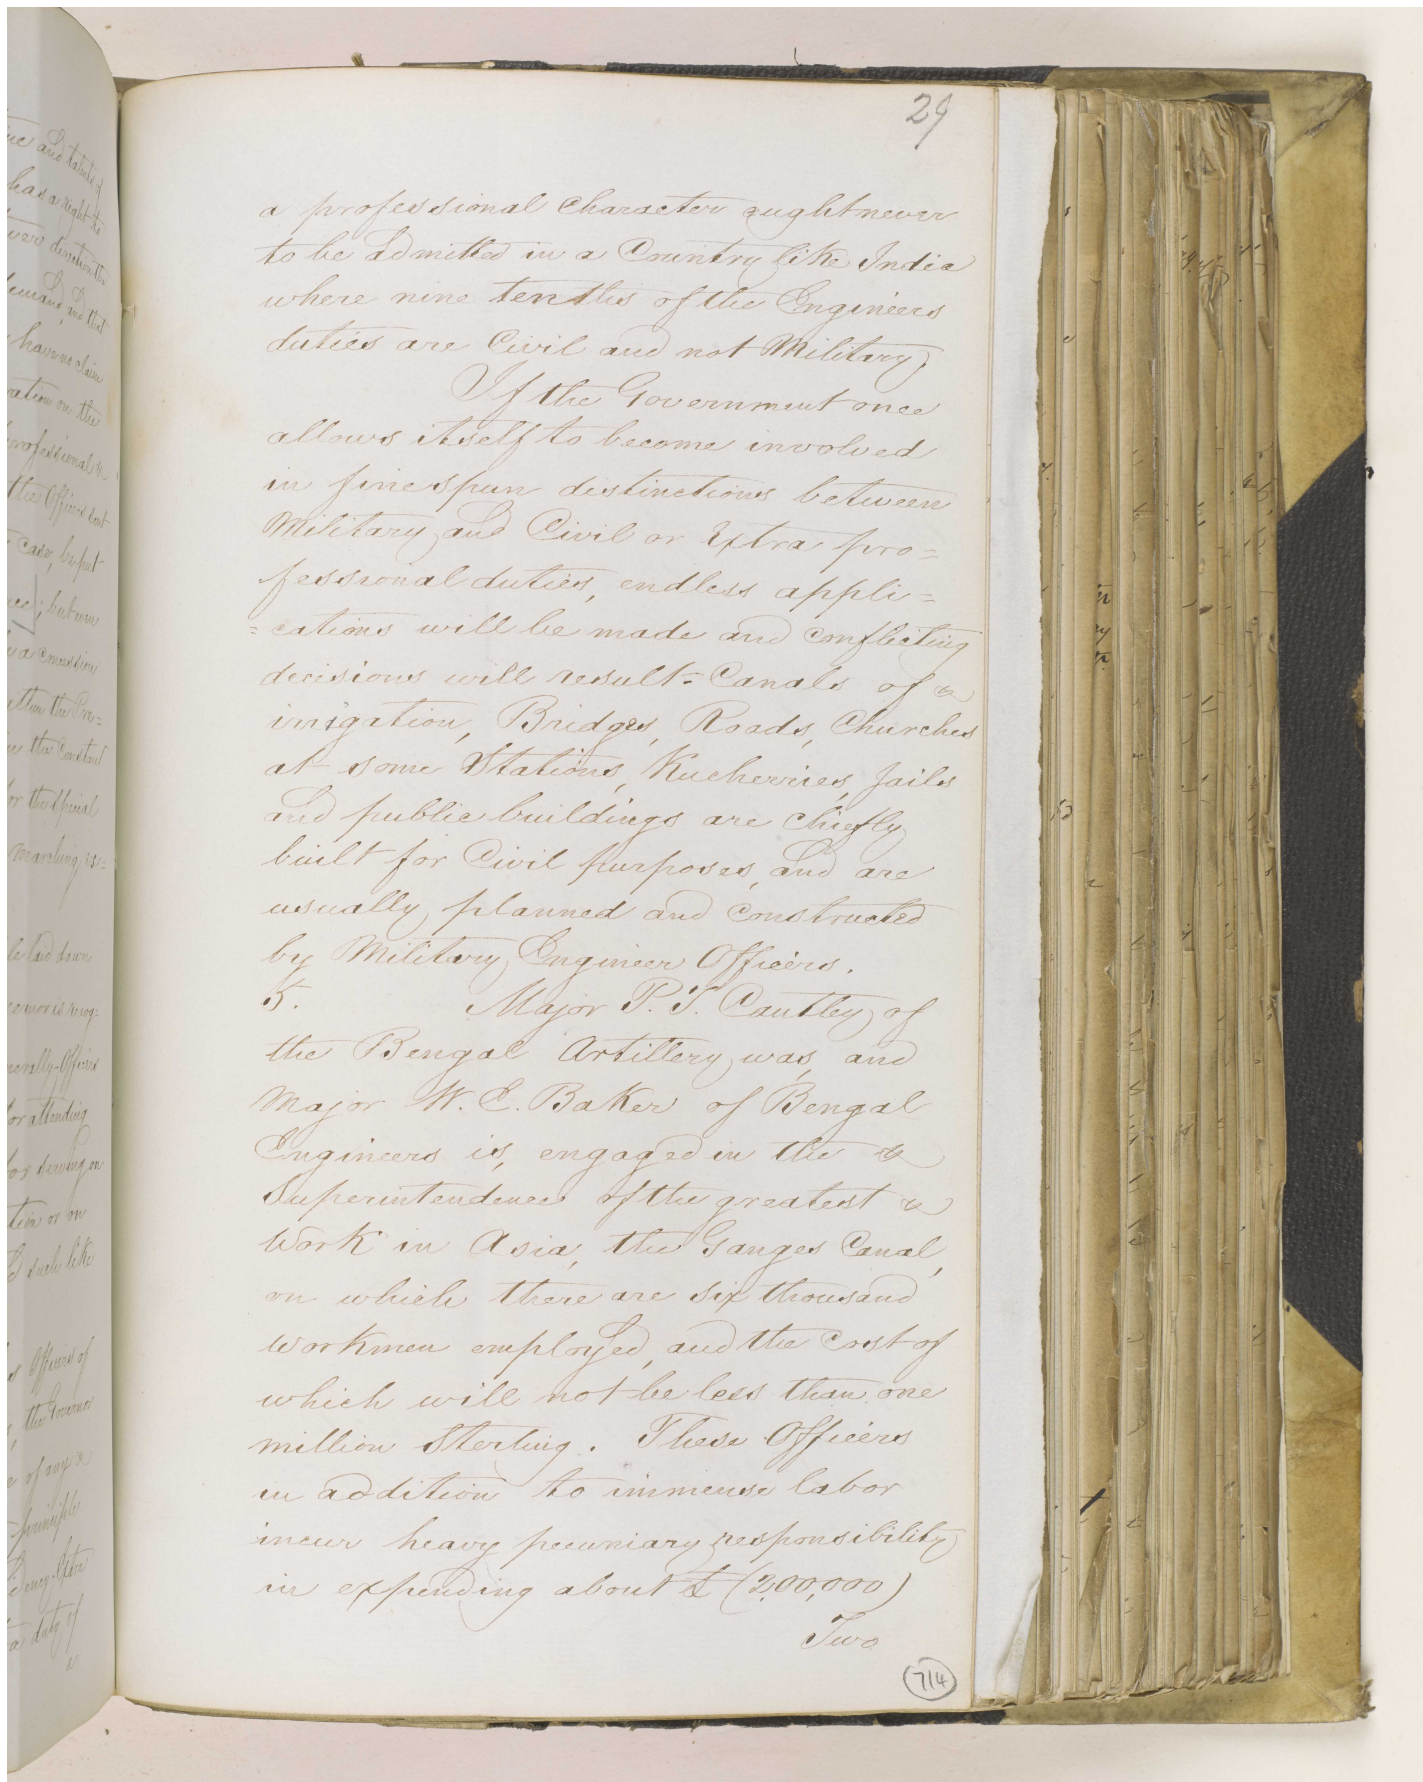 29
a professional character aught never
to be admitted in a Country like India
where nine tenths of the Engineers
duties are Civil and not Military,
If the Government once
allows itself to become involved
in fine spun distinctions between
Military and Civil or Extra pro=
fessional duties, endless appli=
=cations will be made and conflicting
decisions will result= Canals of
irrigation, Bridges, Roads, Churches
at some Stations, Kucherries, Jails
and public buildings are chiefly
built for Civil purposes, and are
usually planned and constructed
by Military Engineer Officers.
5. Major P. T. Cautley of
the Bengal Artillery was, and
Major W. E. Baker of Bengal
Engineers is, engaged in the
Superintendence of the greatest
Work in Asia, the Ganges Canal,
on which there are six thousand
workmen employed, and the cost of
which will not be less than one
million Sterling. These Officers
in addition to immense labor
incur heavy pecuniary responsibility
in expending about £ (2,00,000)
Two
714